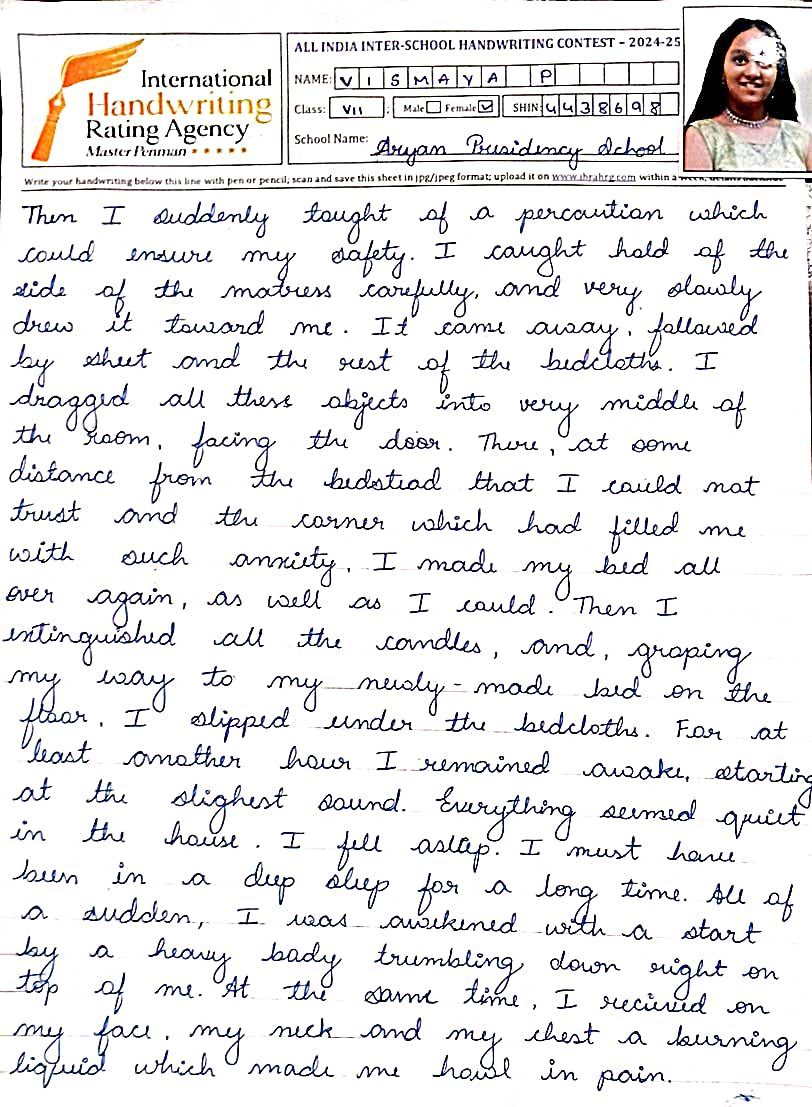 International
Handwriting
Rating Agency
Master Penman
ALL INDIA INTER-SCHOOL HANDWRITING CONTEST – 2024-25
NAME: VISMAYA P
Class: VII Male Female SHIN: 4438698
School Name: Aryan Presidency School
Write your handwriting below this line with pen or pencil; scan and save this sheet in jpg/jpeg format; upload it on www.ihrahrg.com within a
Then I suddenly tought of a percaution which
could ensure my safety. I caught hold of the
side of the matress carefully, and very slowly
drew it toward me. It came away, followed
by sheet and the rest of the bedcloths. I
dragged all these objects into very middle of
the room, facing the door. There, at some
distance from the bedstead that I could not
trust and the corner which had filled me
with such anxiety, I made my bed all
over again, as well as I could. Then I
extinguished all the candles, and, groping
my way to my newly-made bed on the
floor, I slipped under the bedcloths. For at
least another hour I remained awake, starting
at the slighest sound. Everything seemed quiet
in the house. I fell asleep. I must have
been in a deep sleep for a long time. All of
a sudden, I was awakened with a start
by a heavy body trumbling down right on
top of me. At the same time, I recieved on
my face, my neck and my chest a burning
liquid which made me howl in pain.